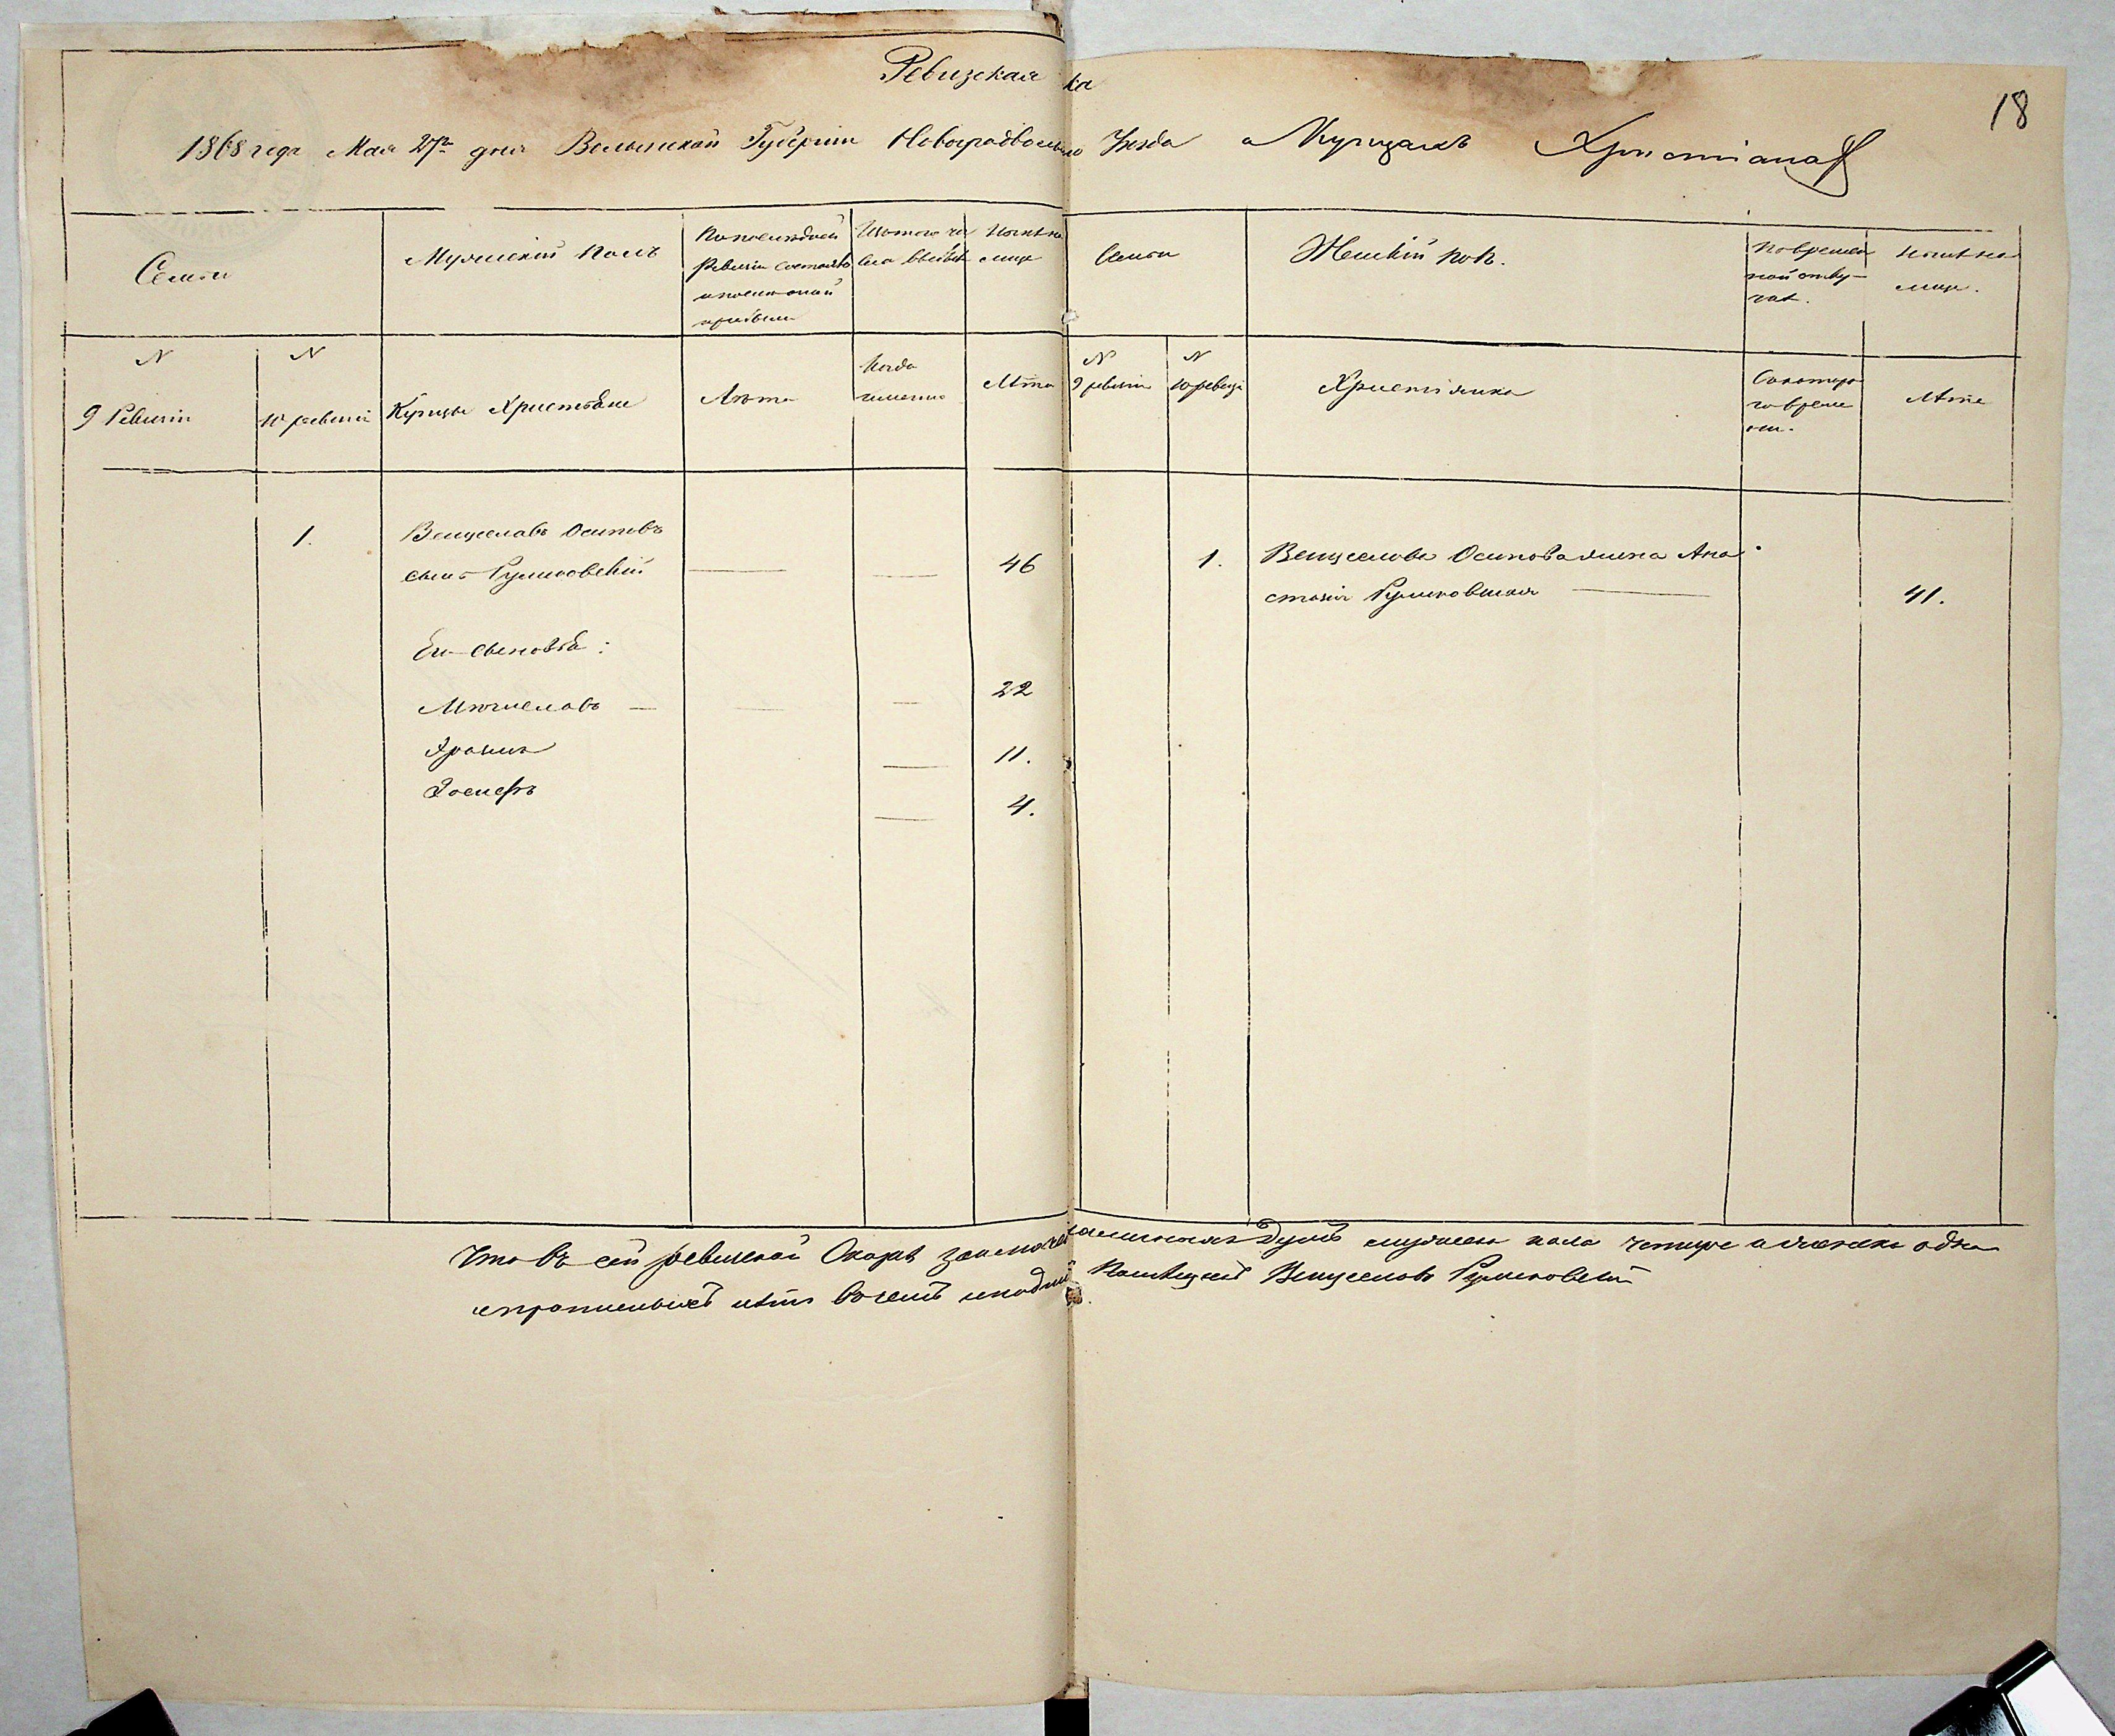 Ревизская ка
18
1868 года Мая 27го дня Волынской Губернии Новоградволын го Уезда о Купцахъ Христіанах
Семьи
Мужескій полъ
По последней
Ревизіи состояло
и после оной
прибыло
Изъ того чи
сла выбыло
Ныне на
лице
Семьи
Женскій полъ.
Во времен
ной отлу-
чке.
Ныне на
лице.
N
9 Ревизіи
N
10 ревизіи
Купцы Христіане
Лета
Когда
именно
Лета
N
9 ревизіи
N
10 ревизі
Христіянка
Съ которо
го време
ни.
Лета
1.
Венцеславъ Осиповъ
сынъ Гульковскій
46
1.
Венцеслова Осипова жена Ана
стазія
41.
Его сыновья:
Мечиславъ
22
11.
Іосифъ
4.
Что въ сей ревизской Скаске душъ мужеска пола четыре а женска одна
и прописныхъ нетъ въ чемъ и подпи Венцеславъ